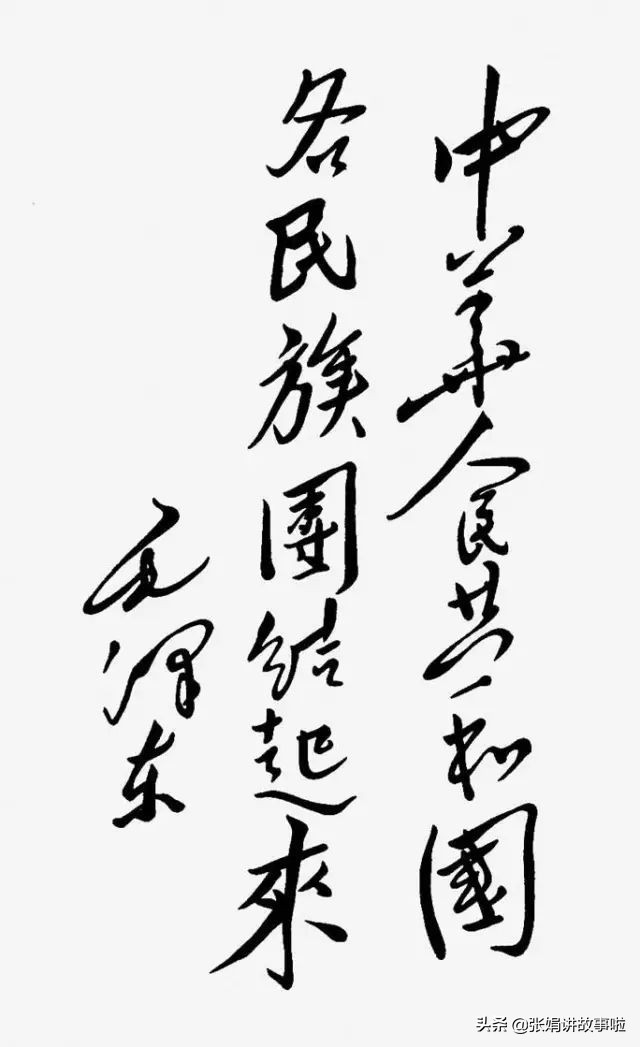 中華人民共和國
各民族團結起來
毛泽东
头条 @张娟讲故事啦